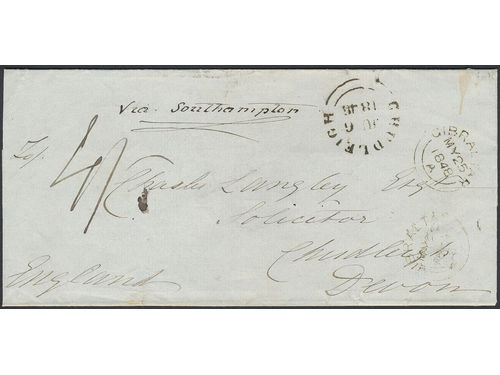 Via Southampton
CHUDLEIGH
JU 6
1848
GIBRA
MY 25
1848
A
To/
4/
Charles Langley Esqr
Solicitor
Chudleigh
Devon
England